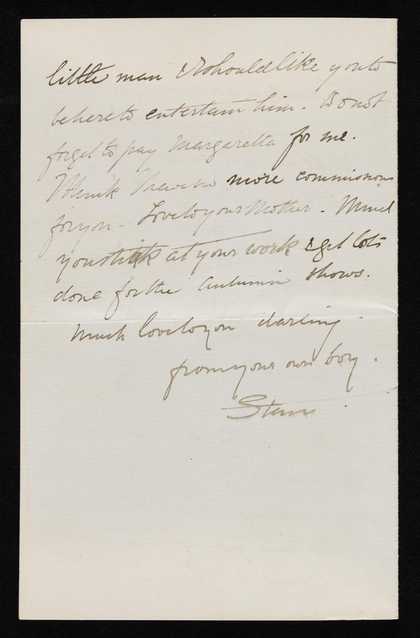 little man & I should like you to
be here to entertain him. Do not
forget to pay Margaretta for me.
I think I have no more commissions
for you. Love to your Mother. Mind
you stick at your work & get lots
done for the Autumn shows.
Much love to you darling.
from your own boy.